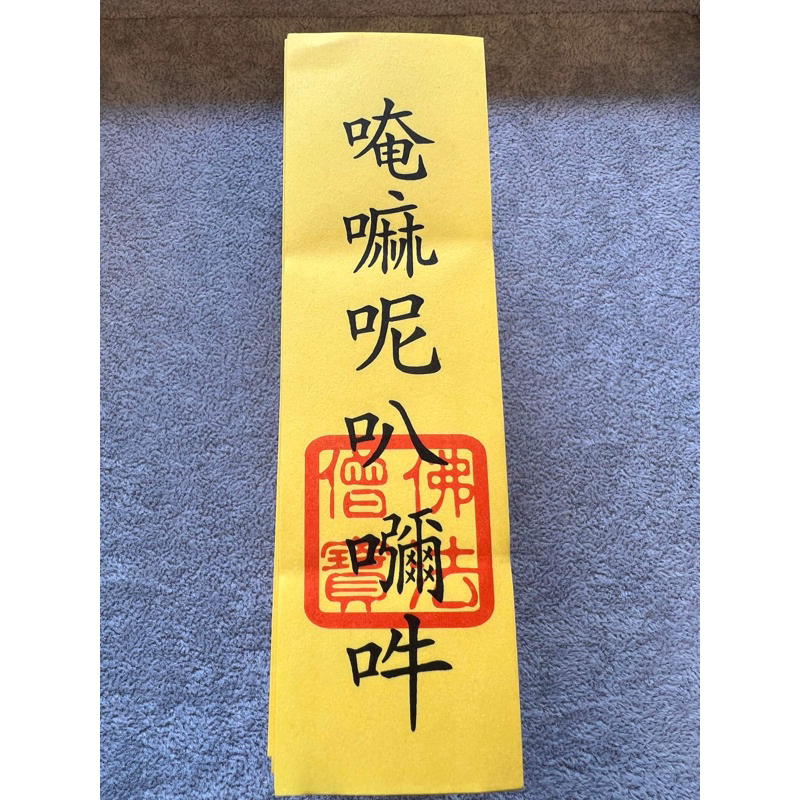 唵嘛呢叭嚸吽
佛法
僧寶